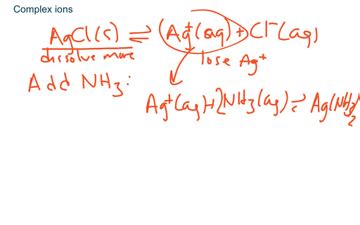 Complex ions
AgCl(s) ⇌ (Ag⁺(aq) + Cl⁻(aq)
dissolve more
lose Ag⁺
Add NH₃:
Ag⁺(aq) + 2NH₃(aq) ⇌ Ag(NH₃)₂